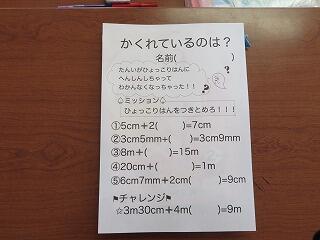 かくれているのは？
名前(　　　　　)
たんいがひょっこりはんに
へんしんしちゃって
わかんなくなっちゃった！！
♤ミッション♤
ひょっこりはんをつきとめろ！！！
①5cm＋2(　　)=7cm
②3cm5mm+(　　)=3cm9mm
③8m＋(　　)=15m
④20cm＋(　　)=1m
⑤6cm7mm＋2cm(　　)=9cm
⚑チャレンジ⚑
☆3m30cm＋4m(　　)=9m